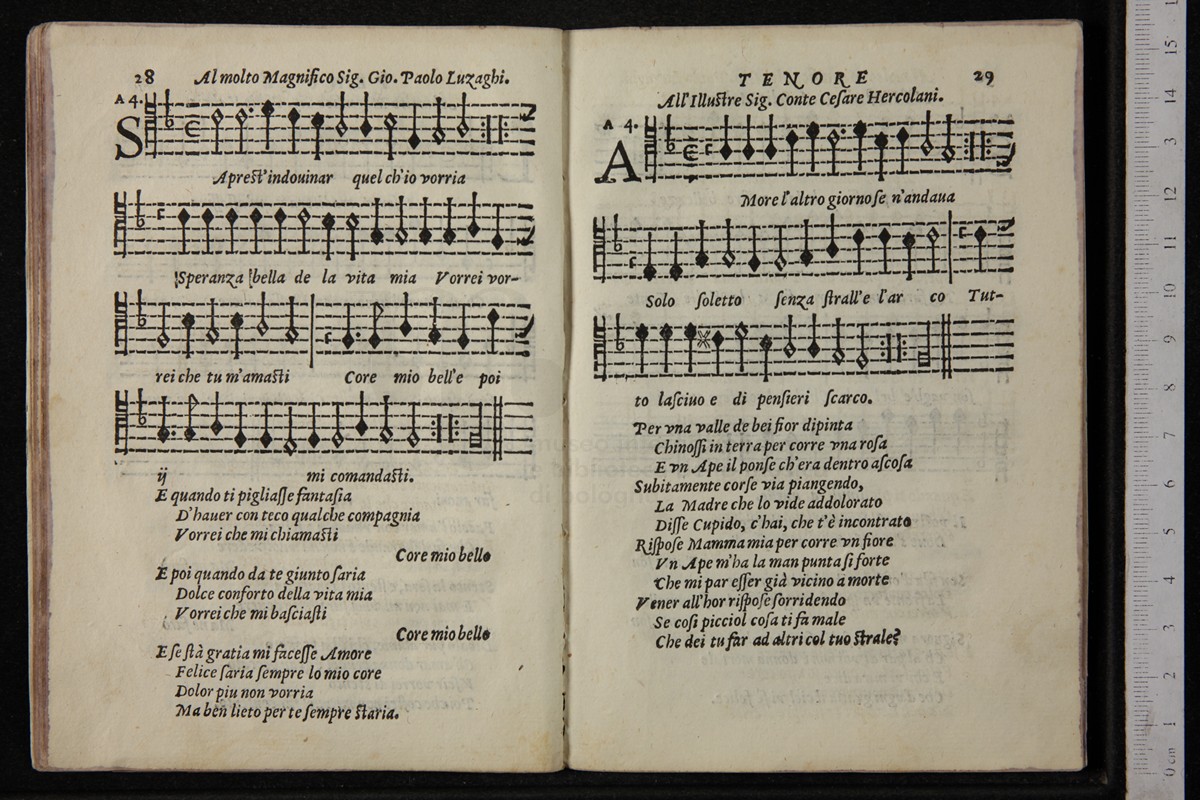 28 Al molto Magnifico Sig. Gio. Paolo Luzaghi.
A 4.
S Aprest' indouinar quel ch'io vorria
Speranza bella de la vita mia Vorrei vor-
rei che tu m'amasti Core mio bell'e poi
ij mi comandasti.
E quando ti pigliasse fantasia
D'hauer con teco qualche compagnia
Vorrei che mi chiamasti
Core mio bello
E poi quando da te giunto saria
Dolce conforto della vita mia
Vorrei che mi basciasti
Core mio bello
E se stà gratia mi facesse Amore
Felice saria sempre lo mio core
Dolor piu non vorria
Ma ben lieto per te sempre staria.
TENORE 29
All'Illustre Sig. Conte Cesare Hercolani.
A 4.
A More l'altro giorno se n'andaua
Solo soletto senza strall'e l'ar co Tut-
to lasciuo e di pensieri scarco.
Per vna valle de bei fior dipinta
Chinossi in terra per corre vna rosa
E vn Ape il ponse ch'era dentro ascosa
Subitamente corse via piangendo,
La Madre che lo vide addolorato
Disse Cupido, c'hai, che t'è incontrato
Rispose Mamma mia per corre vn fiore
Vn Ape m'ha la man punta si forte
Che mi par esser già vicino a morte
Vener all'hor rispose sorridendo
Se cosi picciol cosa ti fa male
Che dei tu far ad altri col tuo strale?
0 cm 1 2 3 4 5 6 7 8 9 10 11 12 13 14 15